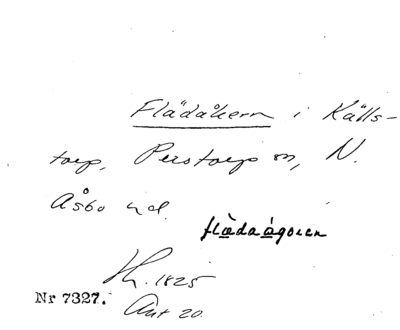 Flädåkern i Källs-
torp, Perstorp sn, N.
Åsbo hd.
flædaågoren
Lh. 1825
Nr 7327. Akt 20.